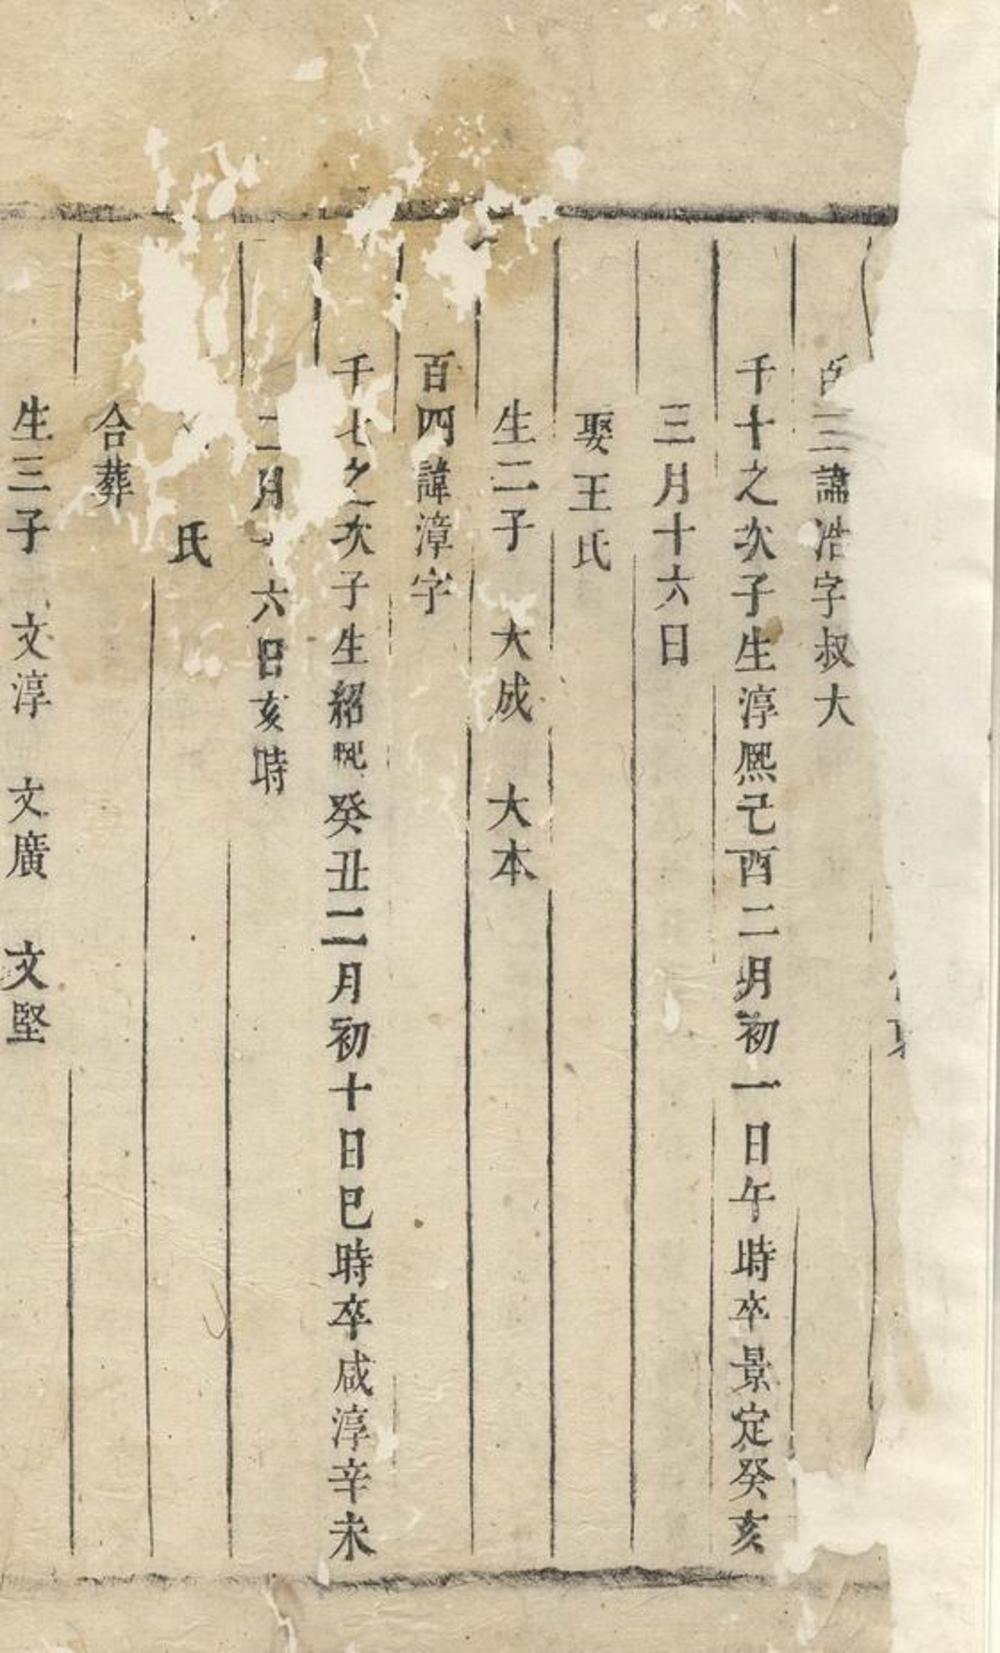 百三諱浩字叔大
千十之次子生淳熈己酉二月初一日午時卒景定癸亥
三月十六日
娶王氏
生二子 大成 大本
百四諱漳字
千七之次子生紹熈癸丑二月初十日巳時卒咸淳辛未
二月十六日亥時
氏
合葬
生三子 文淳 文廣 文堅